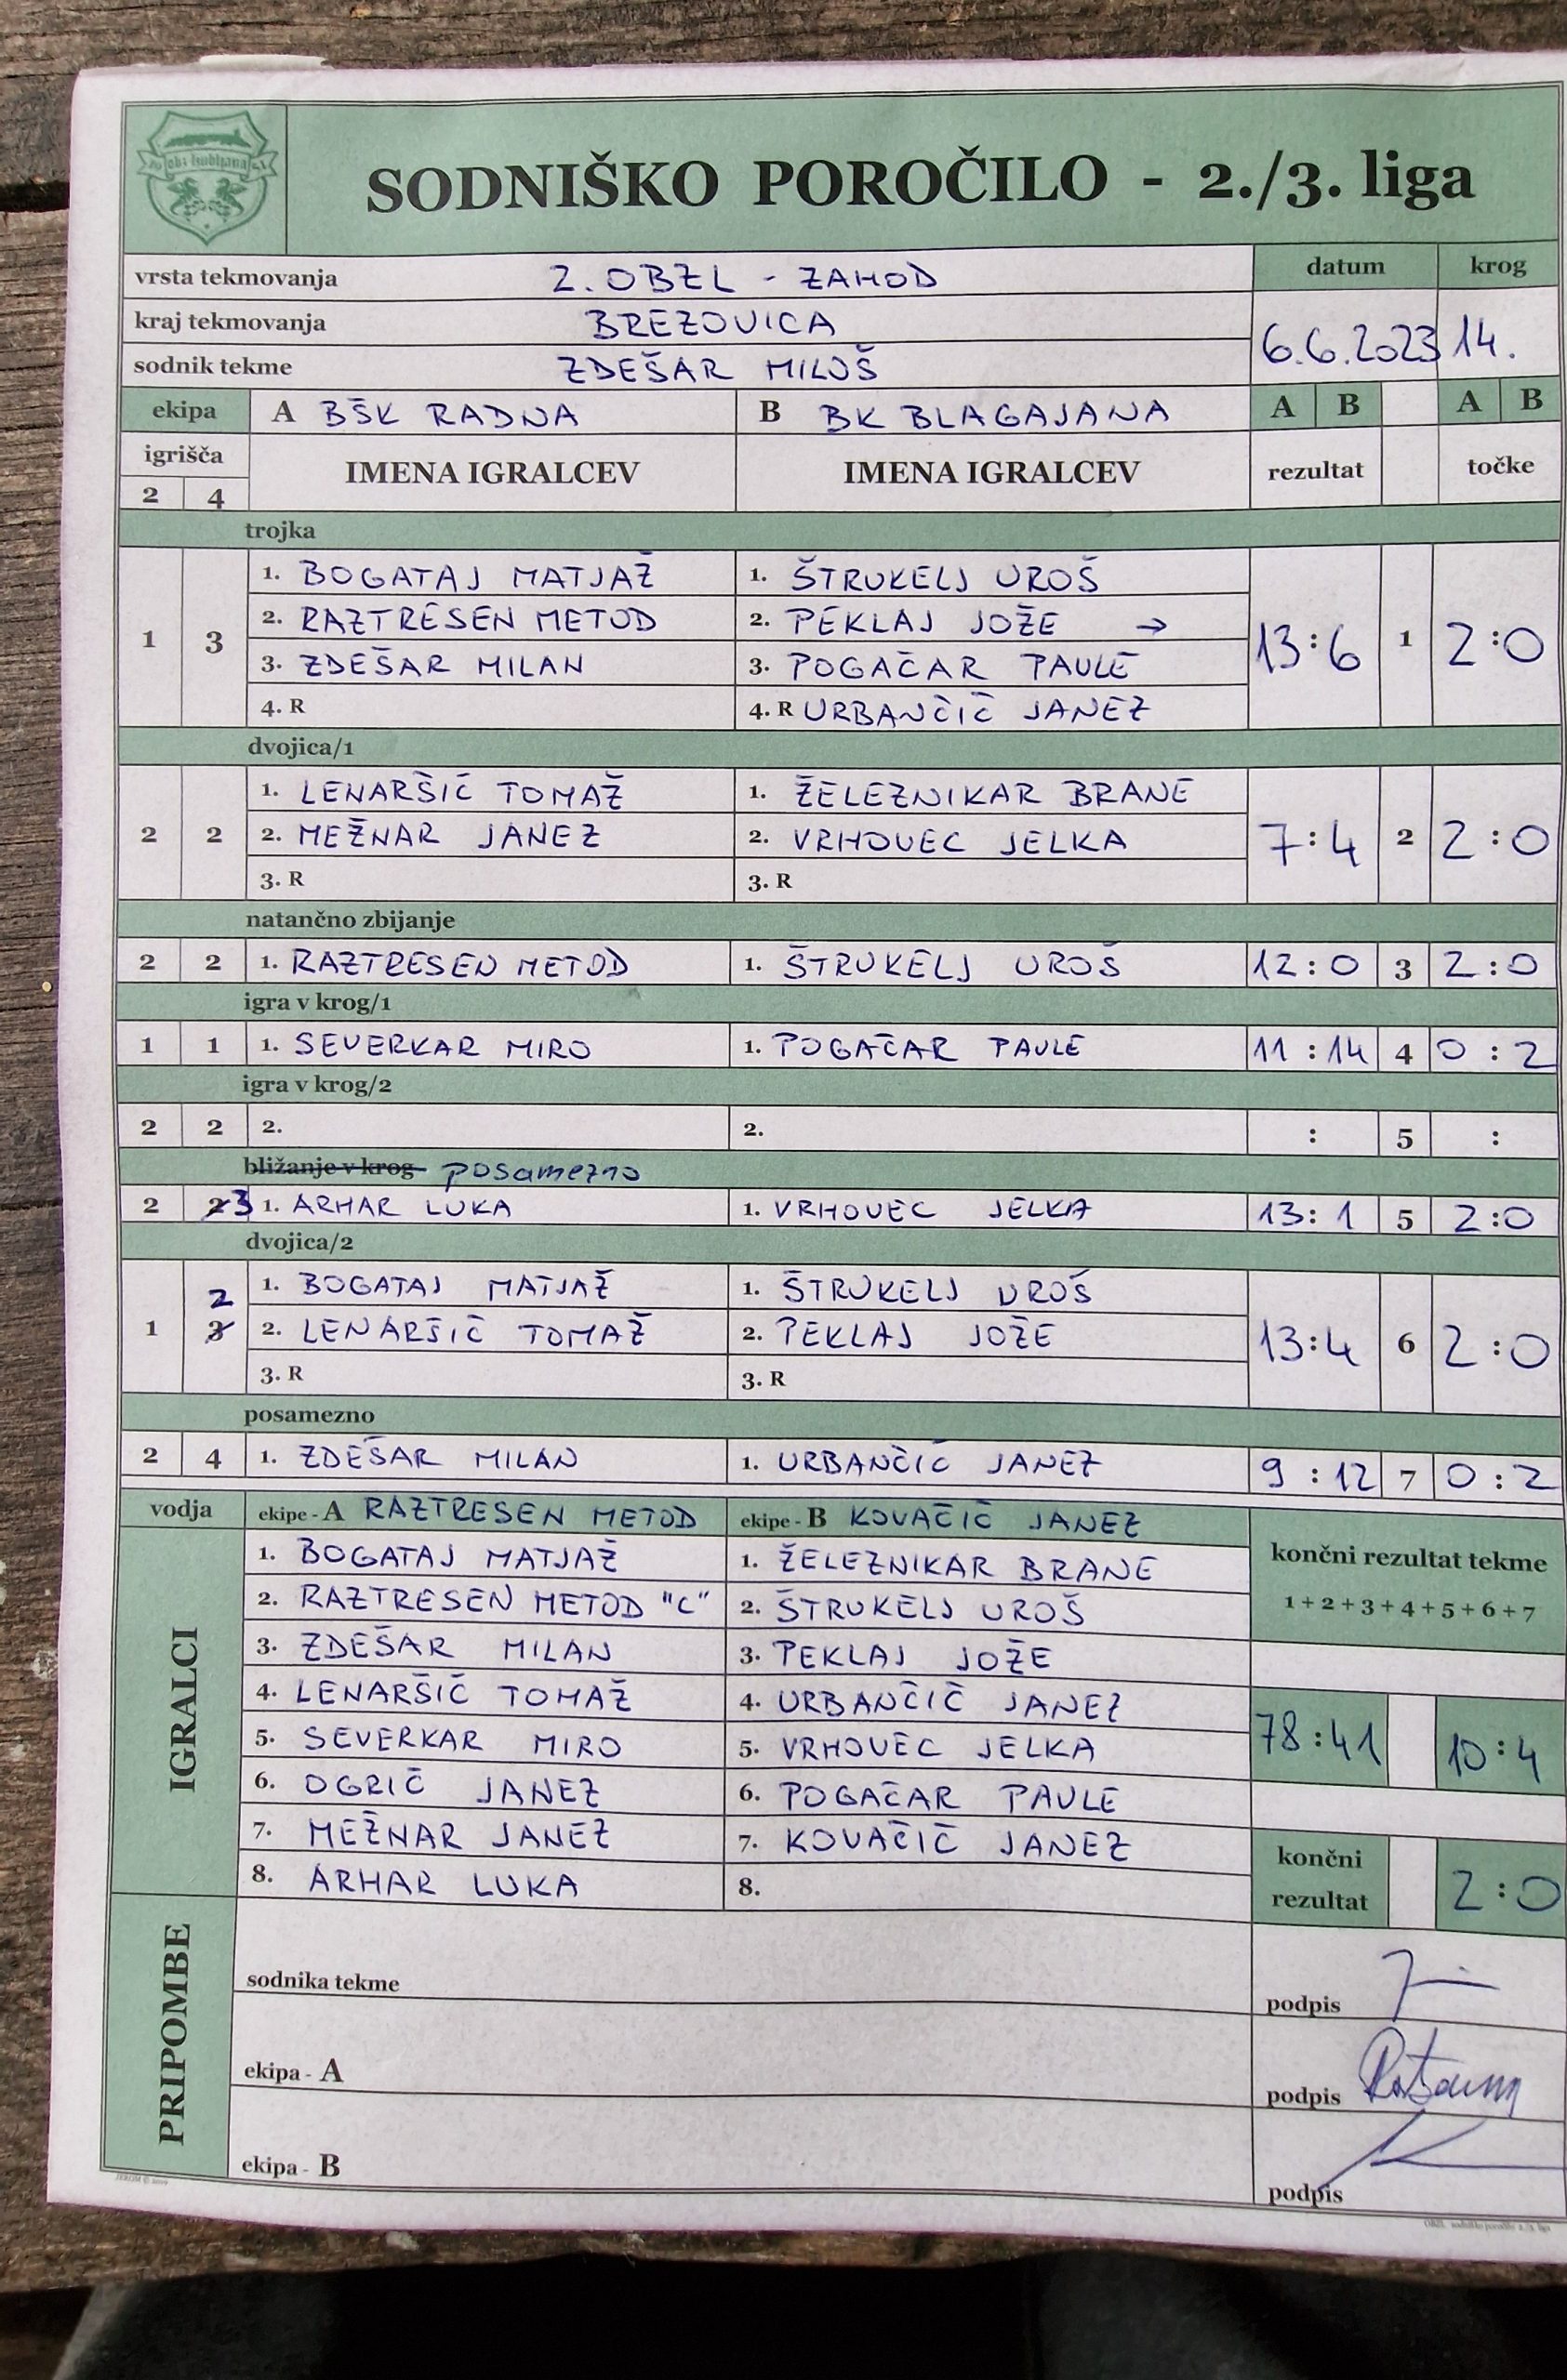 obz ljubljana
SODNIŠKO POROČILO - 2./3. liga
vrsta tekmovanja 2. OBZL - ZAHOD datum krog
kraj tekmovanja BREZOVICA
sodnik tekme ZDEŠAR MILOŠ 6.6.2023 14.
ekipa A BŠK RADNA B BK BLAGAJANA A B A B
igrišča IMENA IGRALCEV IMENA IGRALCEV rezultat točke
2 4
trojka
1. BOGATAJ MATJAŽ 1. ŠTRUKELJ UROŠ
2. RAZTRESEN METOD 2. PEKLAJ JOŽE →
1 3 3. ZDEŠAR MILAN 3. POGAČAR PAVLE 13:6 1 2:0
4. R 4. R URBANČIČ JANEZ
dvojica/1
1. LENARŠIČ TOMAŽ 1. ŽELEZNIKAR BRANE
2 2 2. MEŽNAR JANEZ 2. VRHOVEC JELKA 7:4 2 2:0
3. R 3. R
natančno zbijanje
2 2 1. RAZTRESEN METOD 1. ŠTRUKELJ UROŠ 12:0 3 2:0
igra v krog/1
1 1 1. SEVERKAR MIRO 1. POGAČAR PAVLE 11:14 4 0:2
igra v krog/2
2 2 2. 2. : 5 :
bližanje v krog posamezno
2 2 3 1. ARHAR LUKA 1. VRHOVEC JELKA 13:1 5 2:0
dvojica/2
2 1. BOGATAJ MATJAŽ 1. ŠTRUKELJ UROŠ
1 3 2. LENARŠIČ TOMAŽ 2. PEKLAJ JOŽE 13:4 6 2:0
3. R 3. R
posamezno
2 4 1. ZDEŠAR MILAN 1. URBANČIČ JANEZ 9:12 7 0:2
vodja ekipe - A RAZTRESEN METOD ekipe - B KOVAČIČ JANEZ
IGRALCI
1. BOGATAJ MATJAŽ 1. ŽELEZNIKAR BRANE končni rezultat tekme
2. RAZTRESEN METOD "C" 2. ŠTRUKELJ UROŠ 1 + 2 + 3 + 4 + 5 + 6 + 7
3. ZDEŠAR MILAN 3. PEKLAJ JOŽE
4. LENARŠIČ TOMAŽ 4. URBANČIČ JANEZ
5. SEVERKAR MIRO 5. VRHOVEC JELKA 78:41 10:4
6. OGRIČ JANEZ 6. POGAČAR PAVLE
7. MEŽNAR JANEZ 7. KOVAČIČ JANEZ končni
8. ARHAR LUKA 8. rezultat 2:0
PRIPOMBE
sodnika tekme podpis
ekipa - A podpis
ekipa - B podpis